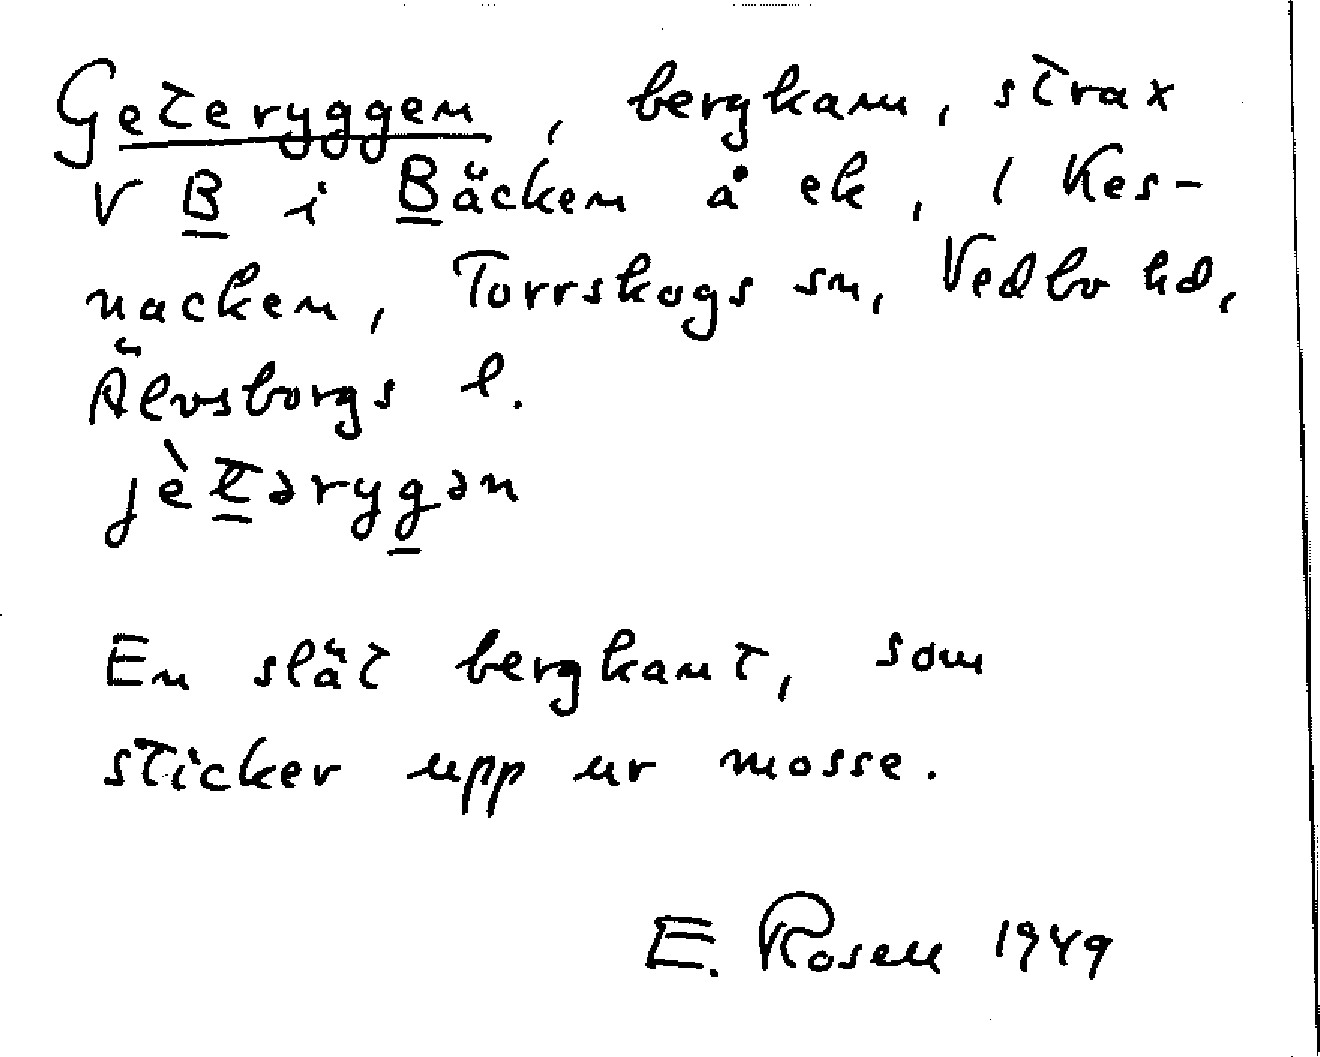 Geteryggen, bergkam, strax
V B i Bäcken å ek, i Kes-
nacken, Torrskogs sn, Vedbo hd,
Älvsborgs l.
jètərygən
En slät bergkant, som
sticker upp ur mosse.
E. Rosell 1949